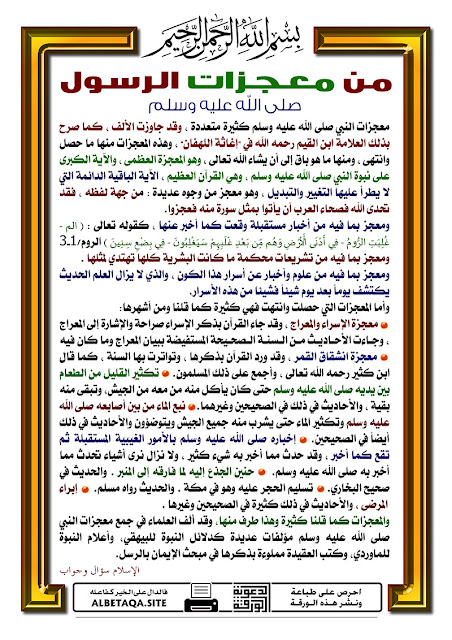 بسم الله الرحمن الرحيم
من معجزات الرسول
صلى الله عليه وسلم
معجزات النبي صلى الله عليه وسلم كثيرة متعددة ، وقد جاوزت الألف ، كما صرح
بذلك العلامة ابن القيم رحمه الله في "إغاثة اللهفان" ، وهذه المعجزات منها ما حصل
وانتهى ، ومنها ما هو باق إلى أن يشاء الله تعالى ، وهو المعجزة العظمى ، والآية الكبرى
على نبوة النبي صلى الله عليه وسلم ، وهي القرآن العظيم ، الآية الباقية الدائمة التي
لا يطرأ عليها التغيير والتبديل ، وهو معجز من وجوه عديدة : من جهة لفظه ، فقد
تحدى الله فصحاء العرب أن يأتوا بمثل سورة منه فعجزوا.
ومعجز بما فيه من أخبار مستقبلة وقعت كما أخبر عنها ، كقوله تعالى : ( الم -
غُلِبَتِ الرُّومُ - فِي أَدْنَى الْأَرْضِ وَهُم مِّن بَعْدِ غَلَبِهِمْ سَيَغْلِبُونَ - فِي بِضْعِ سِنِينَ ) الروم/3.1
ومعجز بما فيه من تشريعات محكمة ما كانت البشرية كلها تهتدي لمثلها .
ومعجز بما فيه من علوم وأخبار عن أسرار هذا الكون ، والذي لا يزال العلم الحديث
يكتشف يوماً بعد يوم شيئاً فشيئا من هذه الأسرار.
وأما المعجزات التي حصلت وانتهت فهي كثيرة كما قلنا ومن أشهرها:
معجزة الإسراء والمعراج ، وقد جاء القرآن بذكر الإسراء صراحة والإشارة إلى المعراج
، وجاءت الأحاديث من السنة الصحيحة المستفيضة ببيان المعراج وما كان فيه
معجزة انشقاق القمر ، وقد ورد القرآن بذكرها ، وتواترت بها السنة ، كما قال
ابن كثير رحمه الله تعالى ، وأجمع على ذلك المسلمون. تكثير القليل من الطعام
بين يديه صلى الله عليه وسلم حتى كان يأكل منه من معه من الجيش، وتبقى منه
بقية ، والأحاديث في ذلك في الصحيحين وغيرهما. نبع الماء من بين أصابعه صلى الله
عليه وسلم وتكثير الماء حتى يشرب منه جميع الجيش ويتوضؤون والأحاديث في ذلك
أيضاً في الصحيحين. إخباره صلى الله عليه وسلم بالأمور الغيبية المستقبلة ثم
تقع كما أخبر ، وقد حدث مما أخبر به شيء كثير ، ولا نزال نرى أشياء تحدث مما
أخبر به صلى الله عليه وسلم. حنين الجذع إليه لما فارقه إلى المنبر . والحديث في
صحيح البخاري. تسليم الحجر عليه وهو في مكة . والحديث رواه مسلم. إبراء
المرضى ، والأحاديث في ذلك كثيرة في الصحيحين وغيرها .
والمعجزات كما قلنا كثيرة وهذا طرف منها، وقد ألف العلماء في جمع معجزات النبي
صلى الله عليه وسلم مؤلفات عديدة كدلائل النبوة للبيهقي، وأعلام النبوة
للماوردي، وكتب العقيدة مملوءة بذكرها في مبحث الإيمان بالرسل.
الإسلام سؤال وجواب
احرص على طباعة
ونشر هذه الورقة
لدعوية
الورقة
فالدال على الخير كفاعله
ALBETAQA.SITE